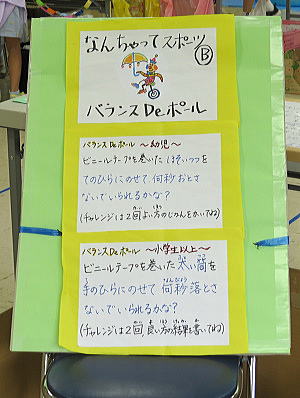 なんちゃってスポーツ
Ⓑ
バランスDeポール
バランスDeポール ～幼児～
ビニールテープを巻いた ほそいつつを
てのひらにのせて、何秒おとさ
ないでいられるかな?
(チャレンジは2回、よい方のじかんをかいてね)
バランスDeポール ～小学生以上～
ビニールテープを巻いた 太い筒を
手のひらにのせて 何秒落とさ
ないでいられるかな?
(チャレンジは2回、良い方の結果を書いてね)